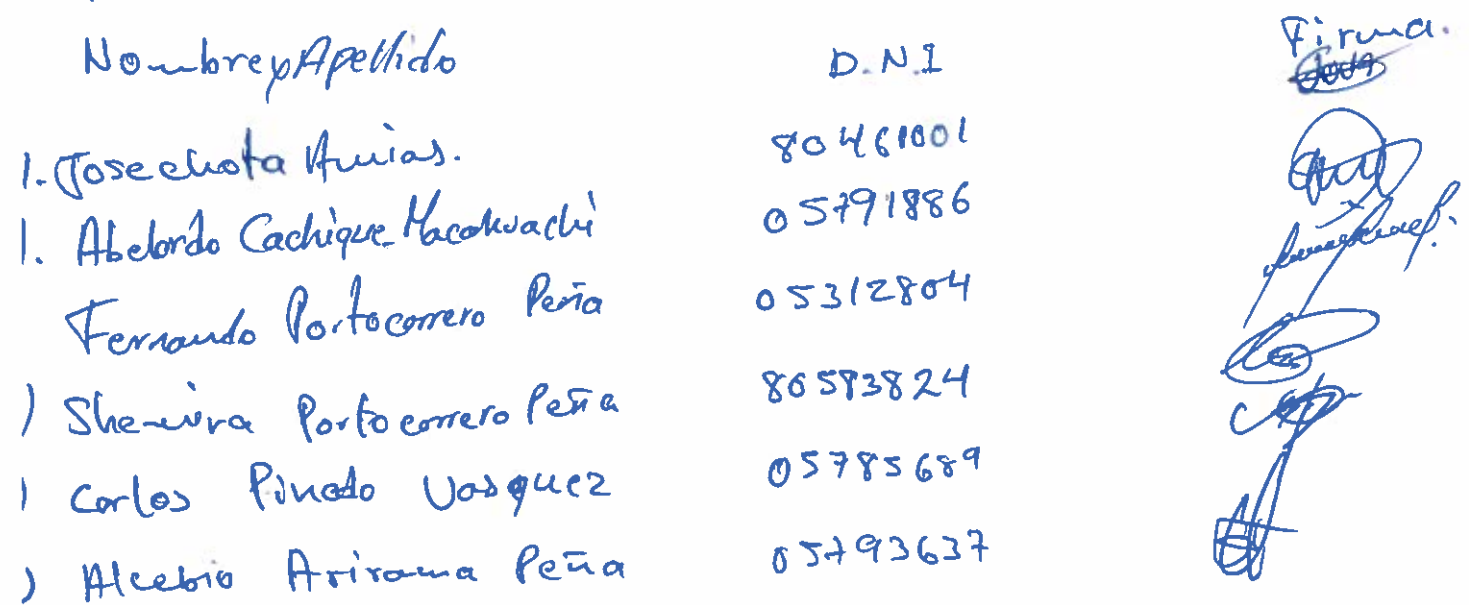 Nombre y Apellido D.N.I Firma.
1. Jose chota Amias. 80461001
1. Abelardo Cachique Macahuachi 05791886
Fernando Portocarrero Peña 05312804
) Portocarrero Peña 80583824
) Carlos Pinedo Vasquez 05785689
) Alcebio Arirama Peña 05793637